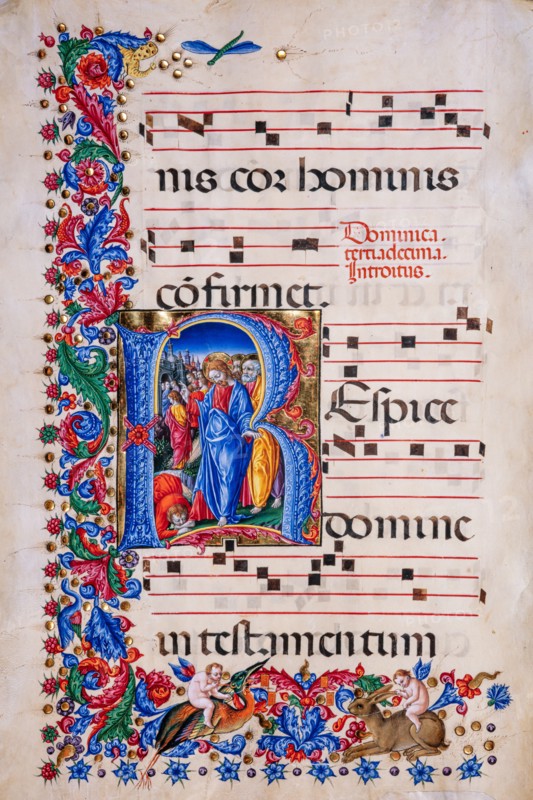 nis cor hominis
Dominica.
tertiadecima.
Introitus.
cōfirmet.
REspice
domine
in testamentum
PHOTO12